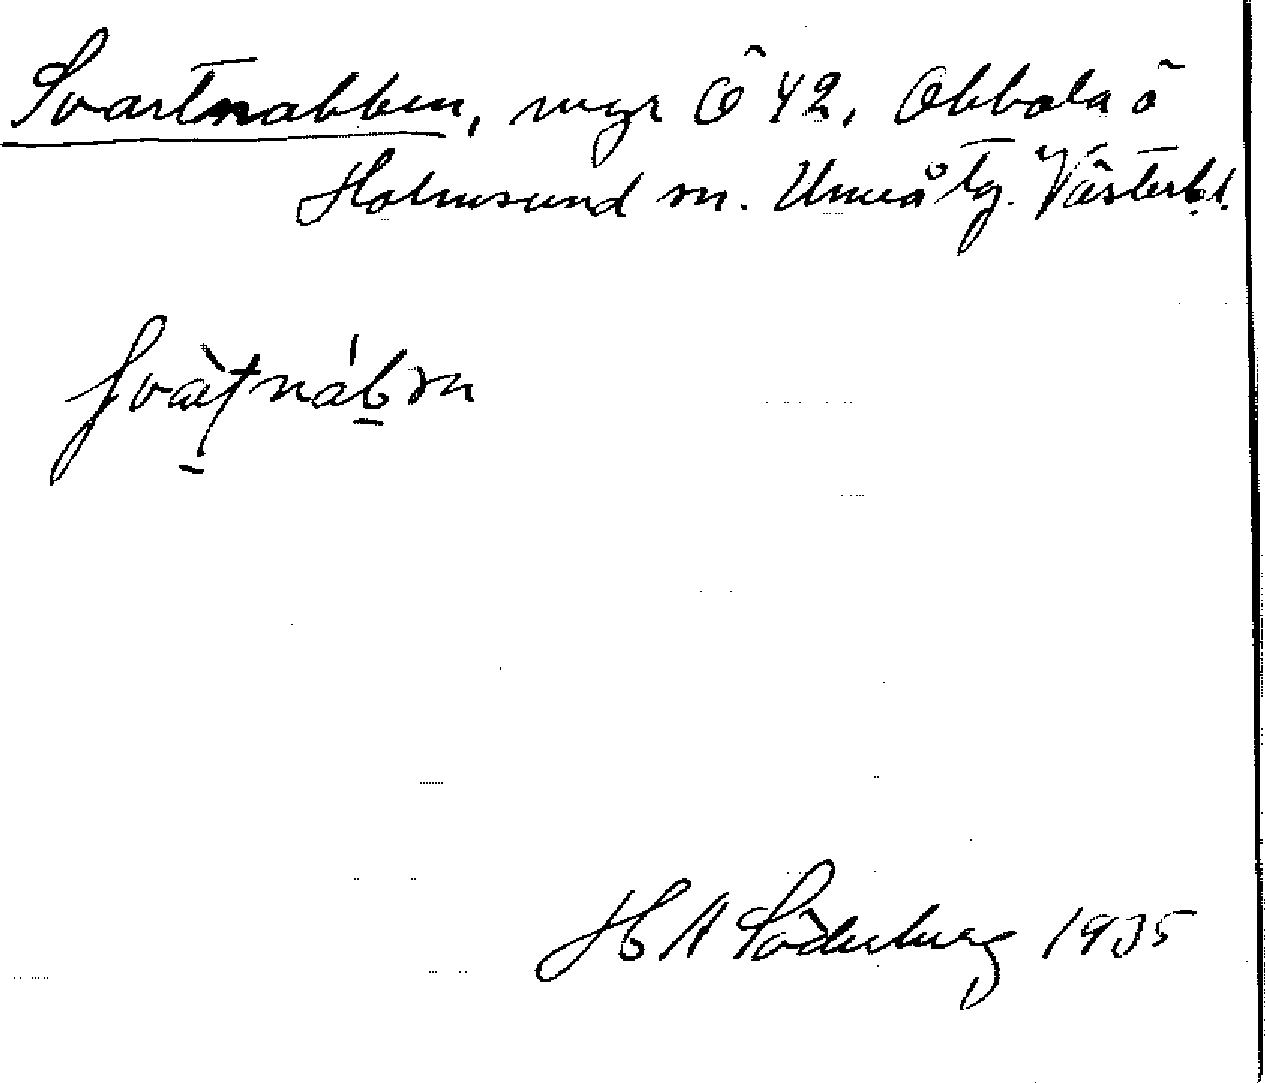 Svartnabben, mgr Ö 42, Obbola ö
Holmsund sn. Umeå tg. Västerb.l.
H A Söderberg 1935